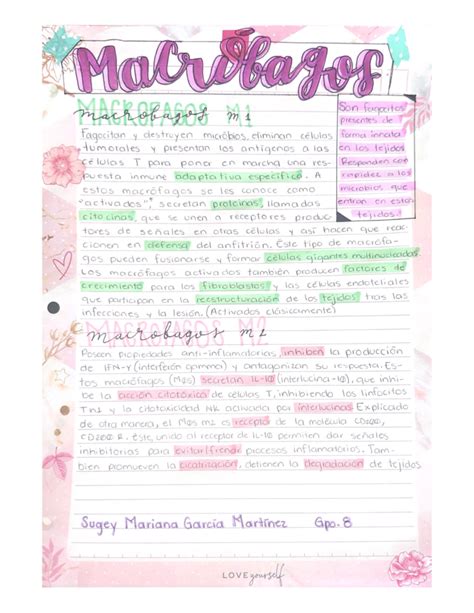 Macrobagos
MACROBAGOS M1
macrobagos m1
Son fagocitos
presentes de
forma innata
en los tejidos
Responden con
rapidez a los
microbios que
entran en estos
tejidos.
Fagocitan y destruyen microbios, eliminan células
tumorales y presentan los antígenos a las
células T para poner en marcha una res-
puesta inmune adaptativa específica. A
estos macrófagos se les conoce como
"activados", secretan proteínas, llamadas
citocinas, que se unen a receptores produc-
tores de señales en otras células y así hacen que reac-
cionen en defensa del anfitrión. Este tipo de macrófa-
gos pueden fusionarse y formar células gigantes multinucleadas.
Los macrófagos activados también producen factores de
crecimiento para los fibroblastos y las células endoteliales
que participan en la reestructuración de los tejidos tras las
infecciones y la lesión. (Activados clásicamente)
MACROBAGOS M2
macrobagos m2
Poseen propiedades anti-inflamatorias, inhiben la producción
de IFN-γ (interferón gamma) y antagonizan su respuesta. Es-
tos macrófagos (MØs) secretan IL-10 (interlucina-10), que inhi-
be la acción citotóxica de células T, inhibiendo los linfocitos
TH1 y la citotoxicidad NK activada por interlucinas. Explicado
de otra manera, el MØs m2 es receptor de la molécula CD200,
CD200R. Este, unido al receptor de IL-10 permiten dar señales
inhibitorias para evitar/frenar procesos inflamatorios. Tam-
bien promueven la cicatrización, detienen la degradación de tejidos.
Sugey Mariana García Martínez Gpo. 8
LOVE yourself